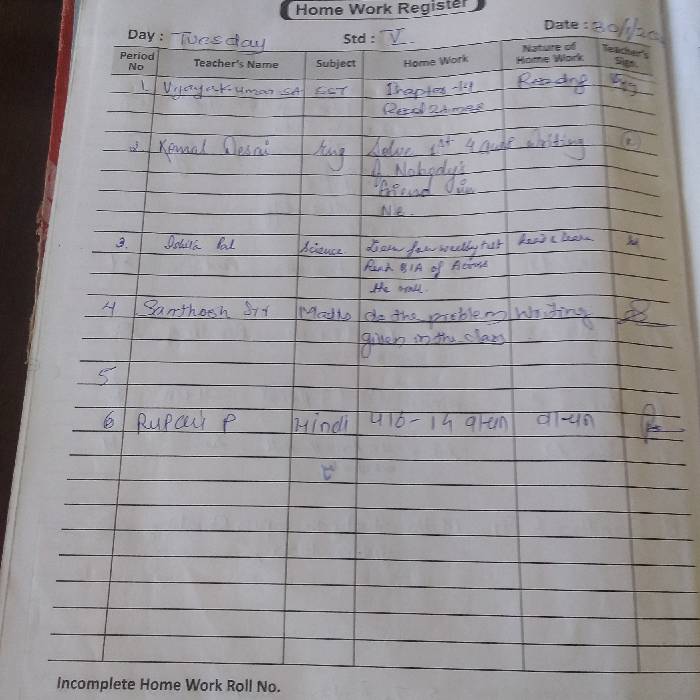 Home Work Register
Day : Tuesday Std : V Date : 30/1/20
Period No Teacher's Name Subject Home Work Nature of Home Work Teacher's Sign.
1. Vijayakumar SA SST Chapter-14 Reading
Read 2 times
2. Komal Desai Eng Solve 1st 4 writing
Nobody's
friend in
NB.
3. Pal Science Learn for weekly test Read & learn
Read B1A of Across
the wall.
4 Santhosh Sir Maths do the problem Writing
given in the class
5
6 Rupali P Hindi पाठ-14 वाचन वाचन
Incomplete Home Work Roll No.